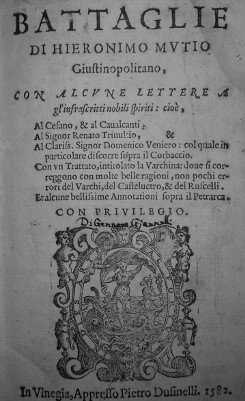 BATTAGLIE
DI HIERONIMO MVTIO
Giustinopolitano,
CON ALCVNE LETTERE A
gl'infrascritti nobili spiriti: cioè,
Al Cesano, & al Caualcanti,
Al Signor Renato Triuultio, &
Al Clariss. Signor Domenico Veniero: col quale in
particolare discorre sopra il Corbaccio.
Con vn Trattato, intitolato la Varchina: doue si cor-
reggono con molte belle ragioni, non pochi er-
rori del Varchi, del Casteluetro, & del Ruscelli.
Et alcune bellissime Annotationi sopra il Petrarca.
CON PRIVILEGIO.
Di Gennaro
In Vinegia, Appresso Pietro Dusinelli. 1582.